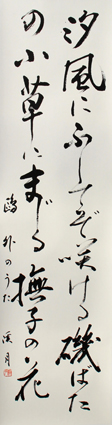 汐風にふしてぞ咲ける磯ばた
の小草にまじる撫子の花
鴎外のうた 溪月